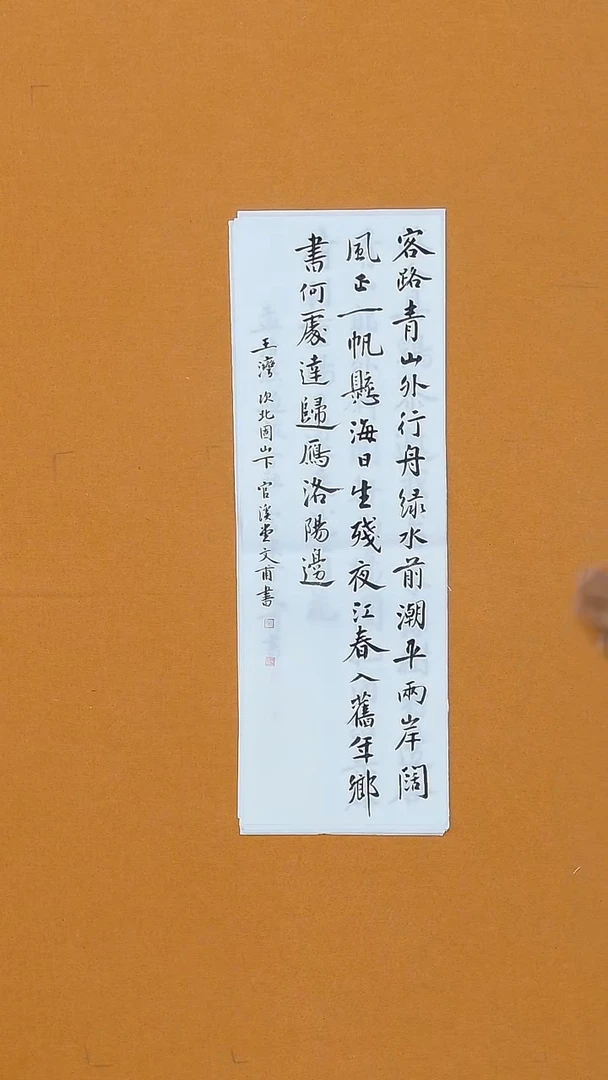 客路青山外行舟绿水前潮平兩岸闊
風正一帆懸海日生殘夜江春入舊年鄉
書何處達歸雁洛陽邊
王灣次北固山下官溪堂文甫書